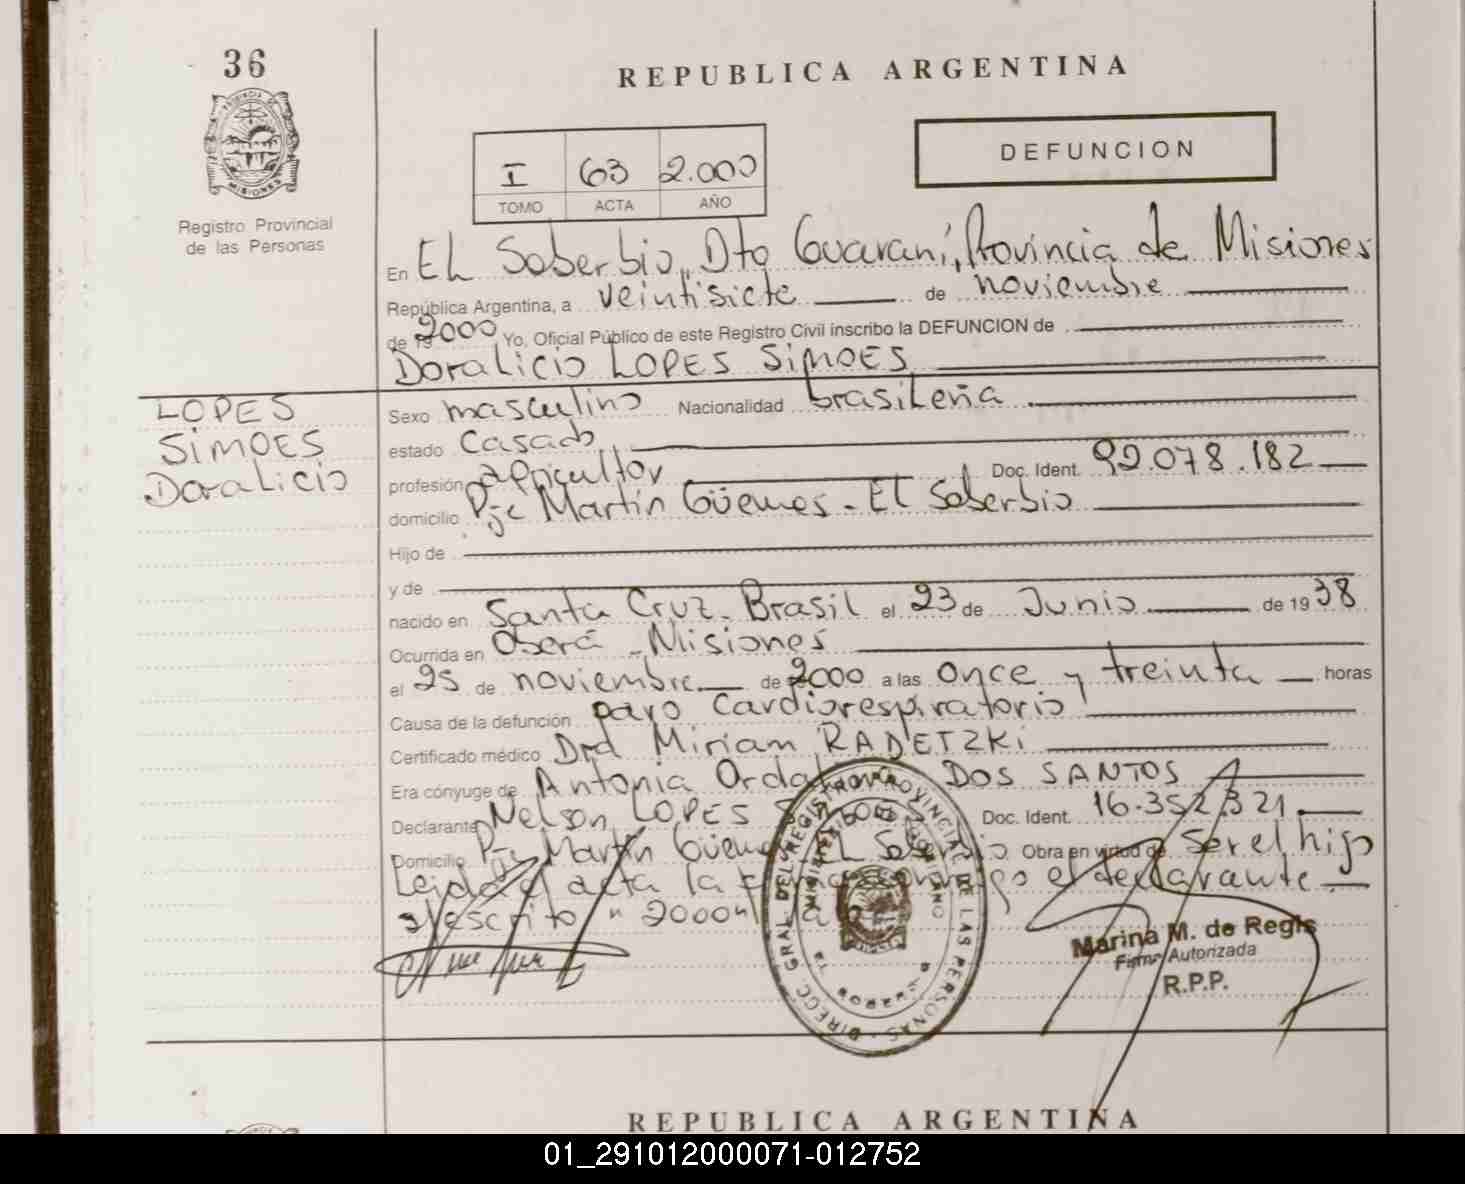 36
REPUBLICA ARGENTINA
DEFUNCION
I 63 2.000
TOMO ACTA AÑO
PROVINCIA DE
MISIONES
Registro Provincial
de las Personas
En EL Soberbio, Dto Guaraní, Provincia de Misiones
República Argentina, a veintisiete de noviembre
de 19 2000 Yo, Oficial Público de este Registro Civil inscribo la DEFUNCION de
Doralicio LOPES SIMOES
LOPES
SIMOES
Doralicio
Sexo masculino Nacionalidad brasileña
estado Casado
profesión agricultor Doc. Ident. 92.078.182
domicilio Pje Martín Güemes - El Soberbio
Hijo de
y de
nacido en Santa Cruz - Brasil el 23 de Junio de 1938
Ocurrida en Oberá - Misiones
el 25 de noviembre de 2000 a las once y treinta horas
Causa de la defunción paro Cardiorespiratorio
Certificado médico Dra Miriam RADETZKI
Era cónyuge de Antonia DOS SANTOS
Declarante Nelson LOPES Doc. Ident. 16.352.321
Domicilio Pje Martín Güemes El Soberbio Obra en virtud de ser el hijo
Leida el acta la el declarante
s/escrito "2000"
DIRECC. GRAL. DEL REGISTRO PROVINCIAL DE LAS PERSONAS
Marina M. de Regis
Firma Autorizada
R.P.P.
REPUBLICA ARGENTINA
01_291012000071-012752